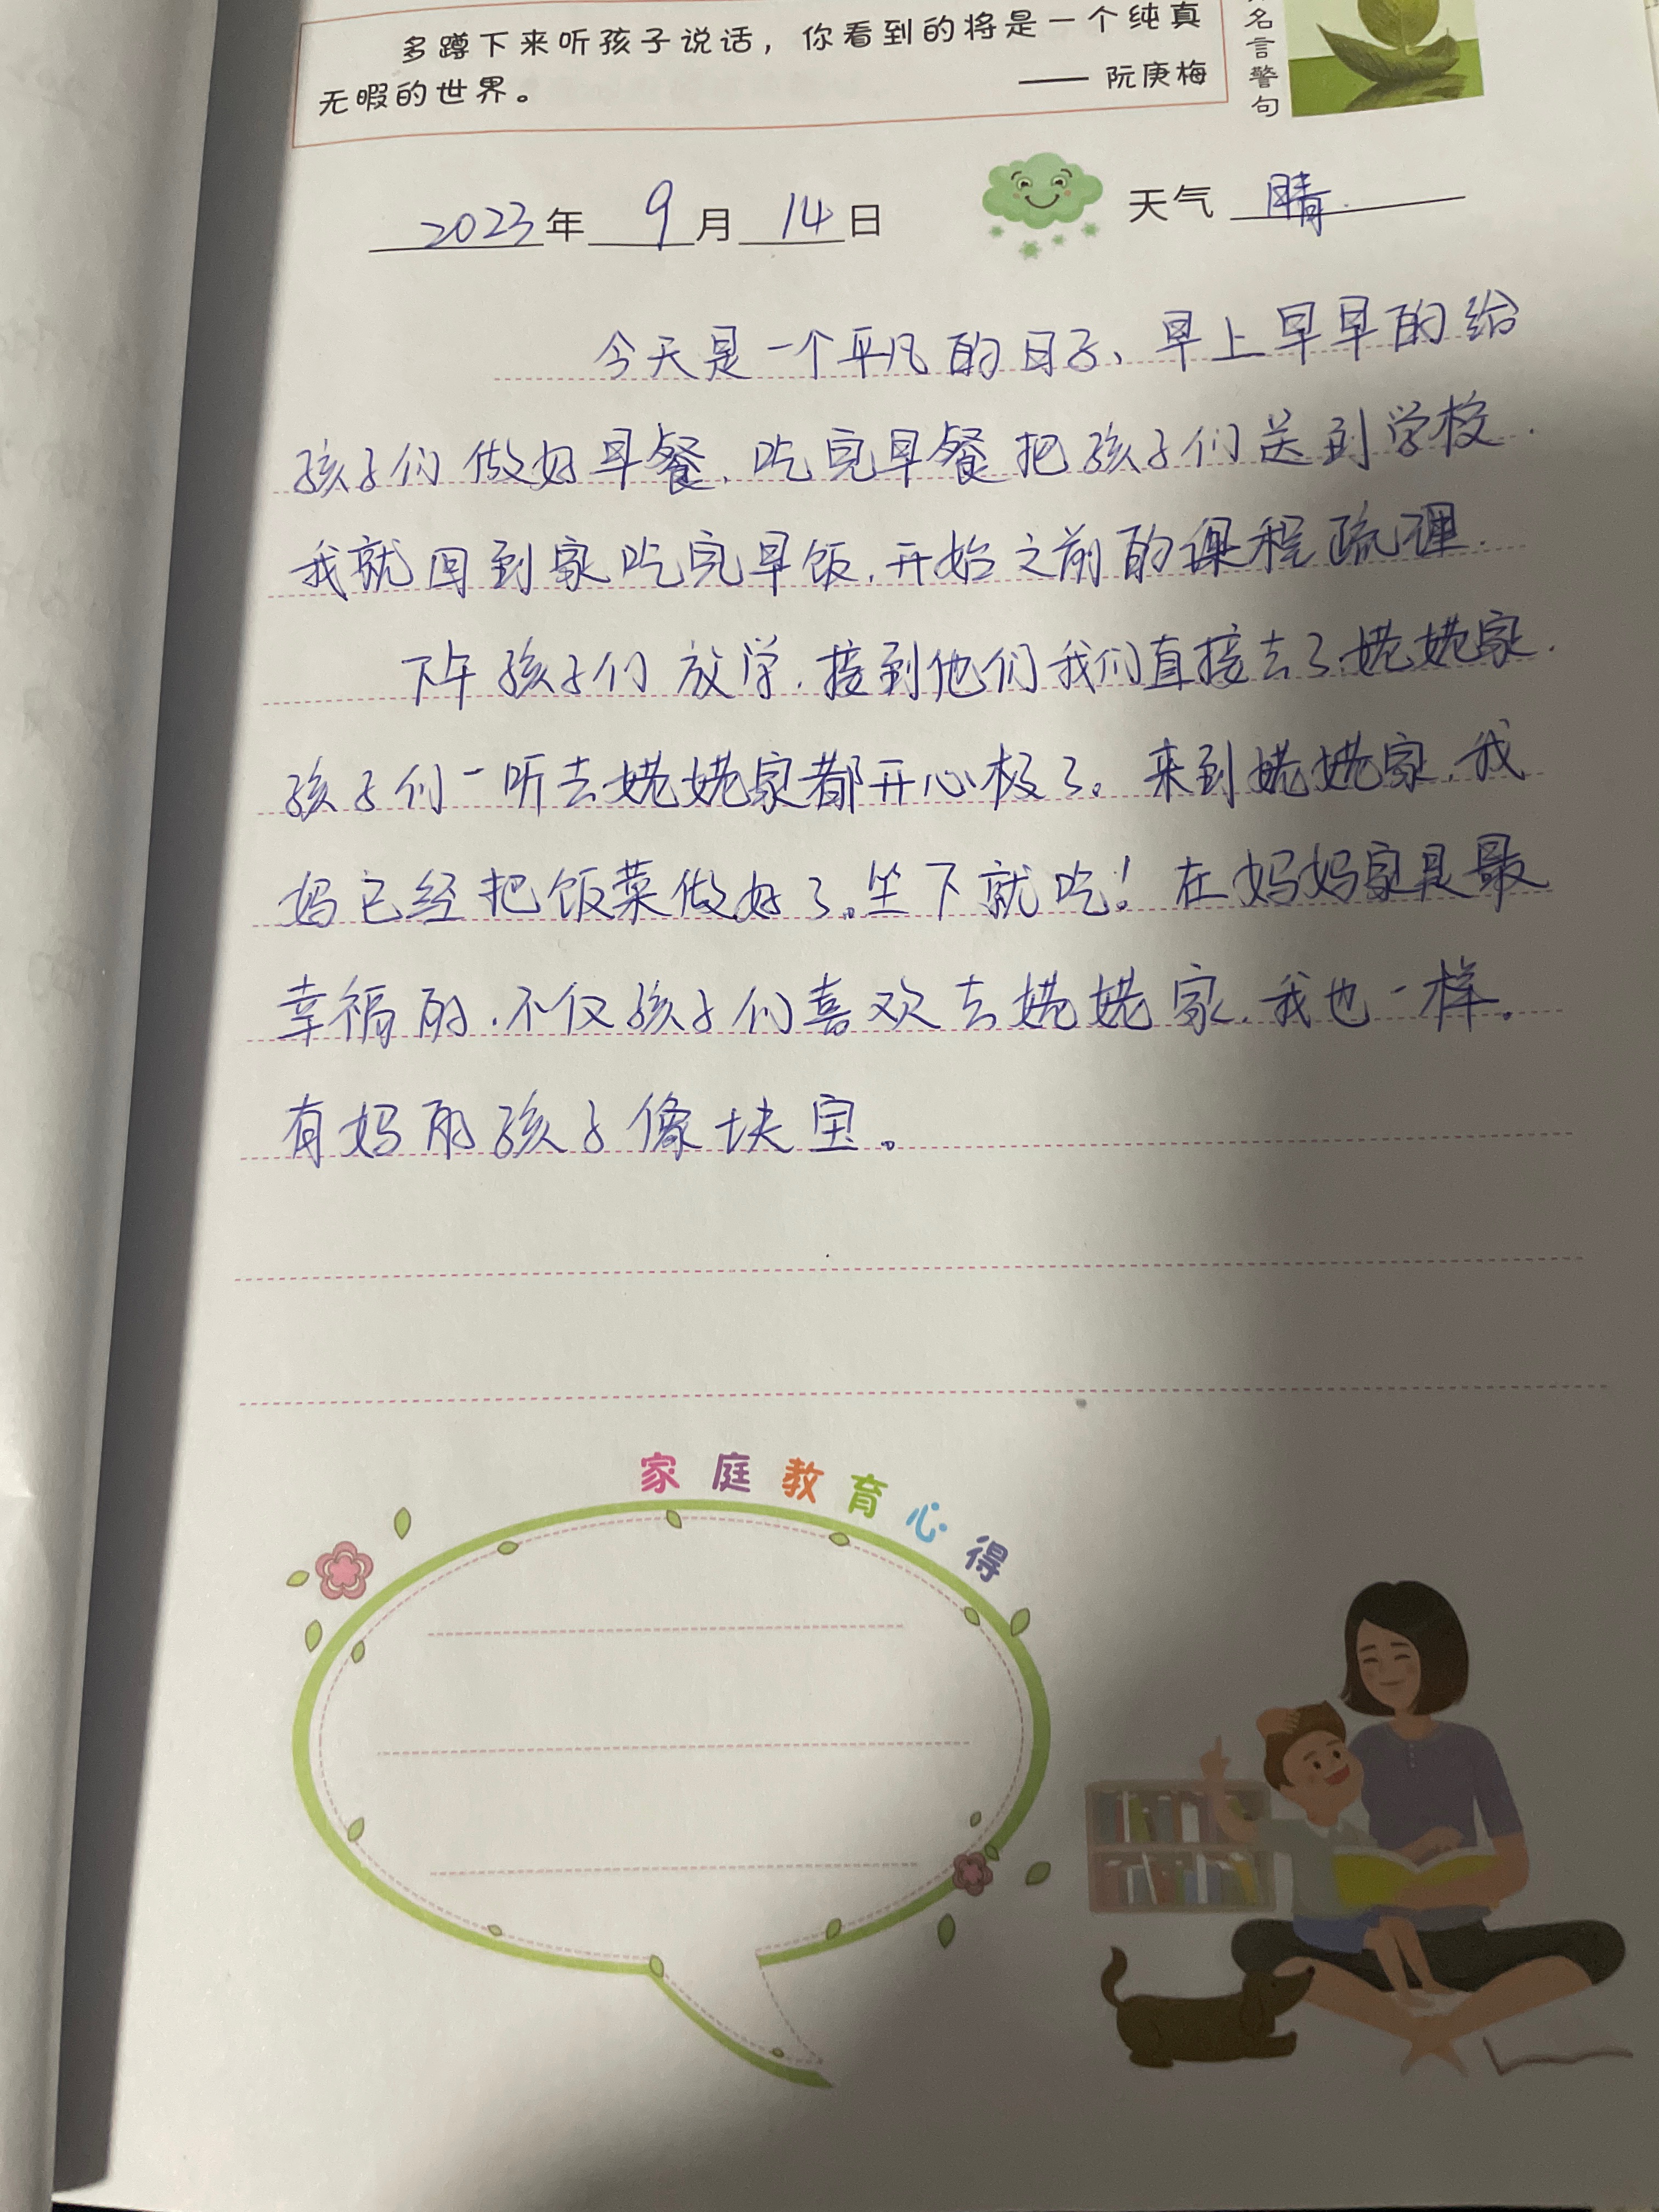 多蹲下来听孩子说话，你看到的将是一个纯真
无暇的世界。
—— 阮庚梅
名言警句
2023年 9月 14日
天气 晴.
今天是一个平凡的日子、早上早早的给
孩子们做好早餐.吃完早餐把孩子们送到学校.
我就回到家吃完早饭.开始之前的课程疏理.
下午孩子们放学.接到他们我们直接去了姥姥家.
孩子们一听去姥姥家都开心极了。来到姥姥家.我
妈已经把饭菜做好了。坐下就吃！在妈妈家是最
幸福的.不仅孩子们喜欢去姥姥家.我也一样。
有妈的孩子像块宝。
家庭教育心得